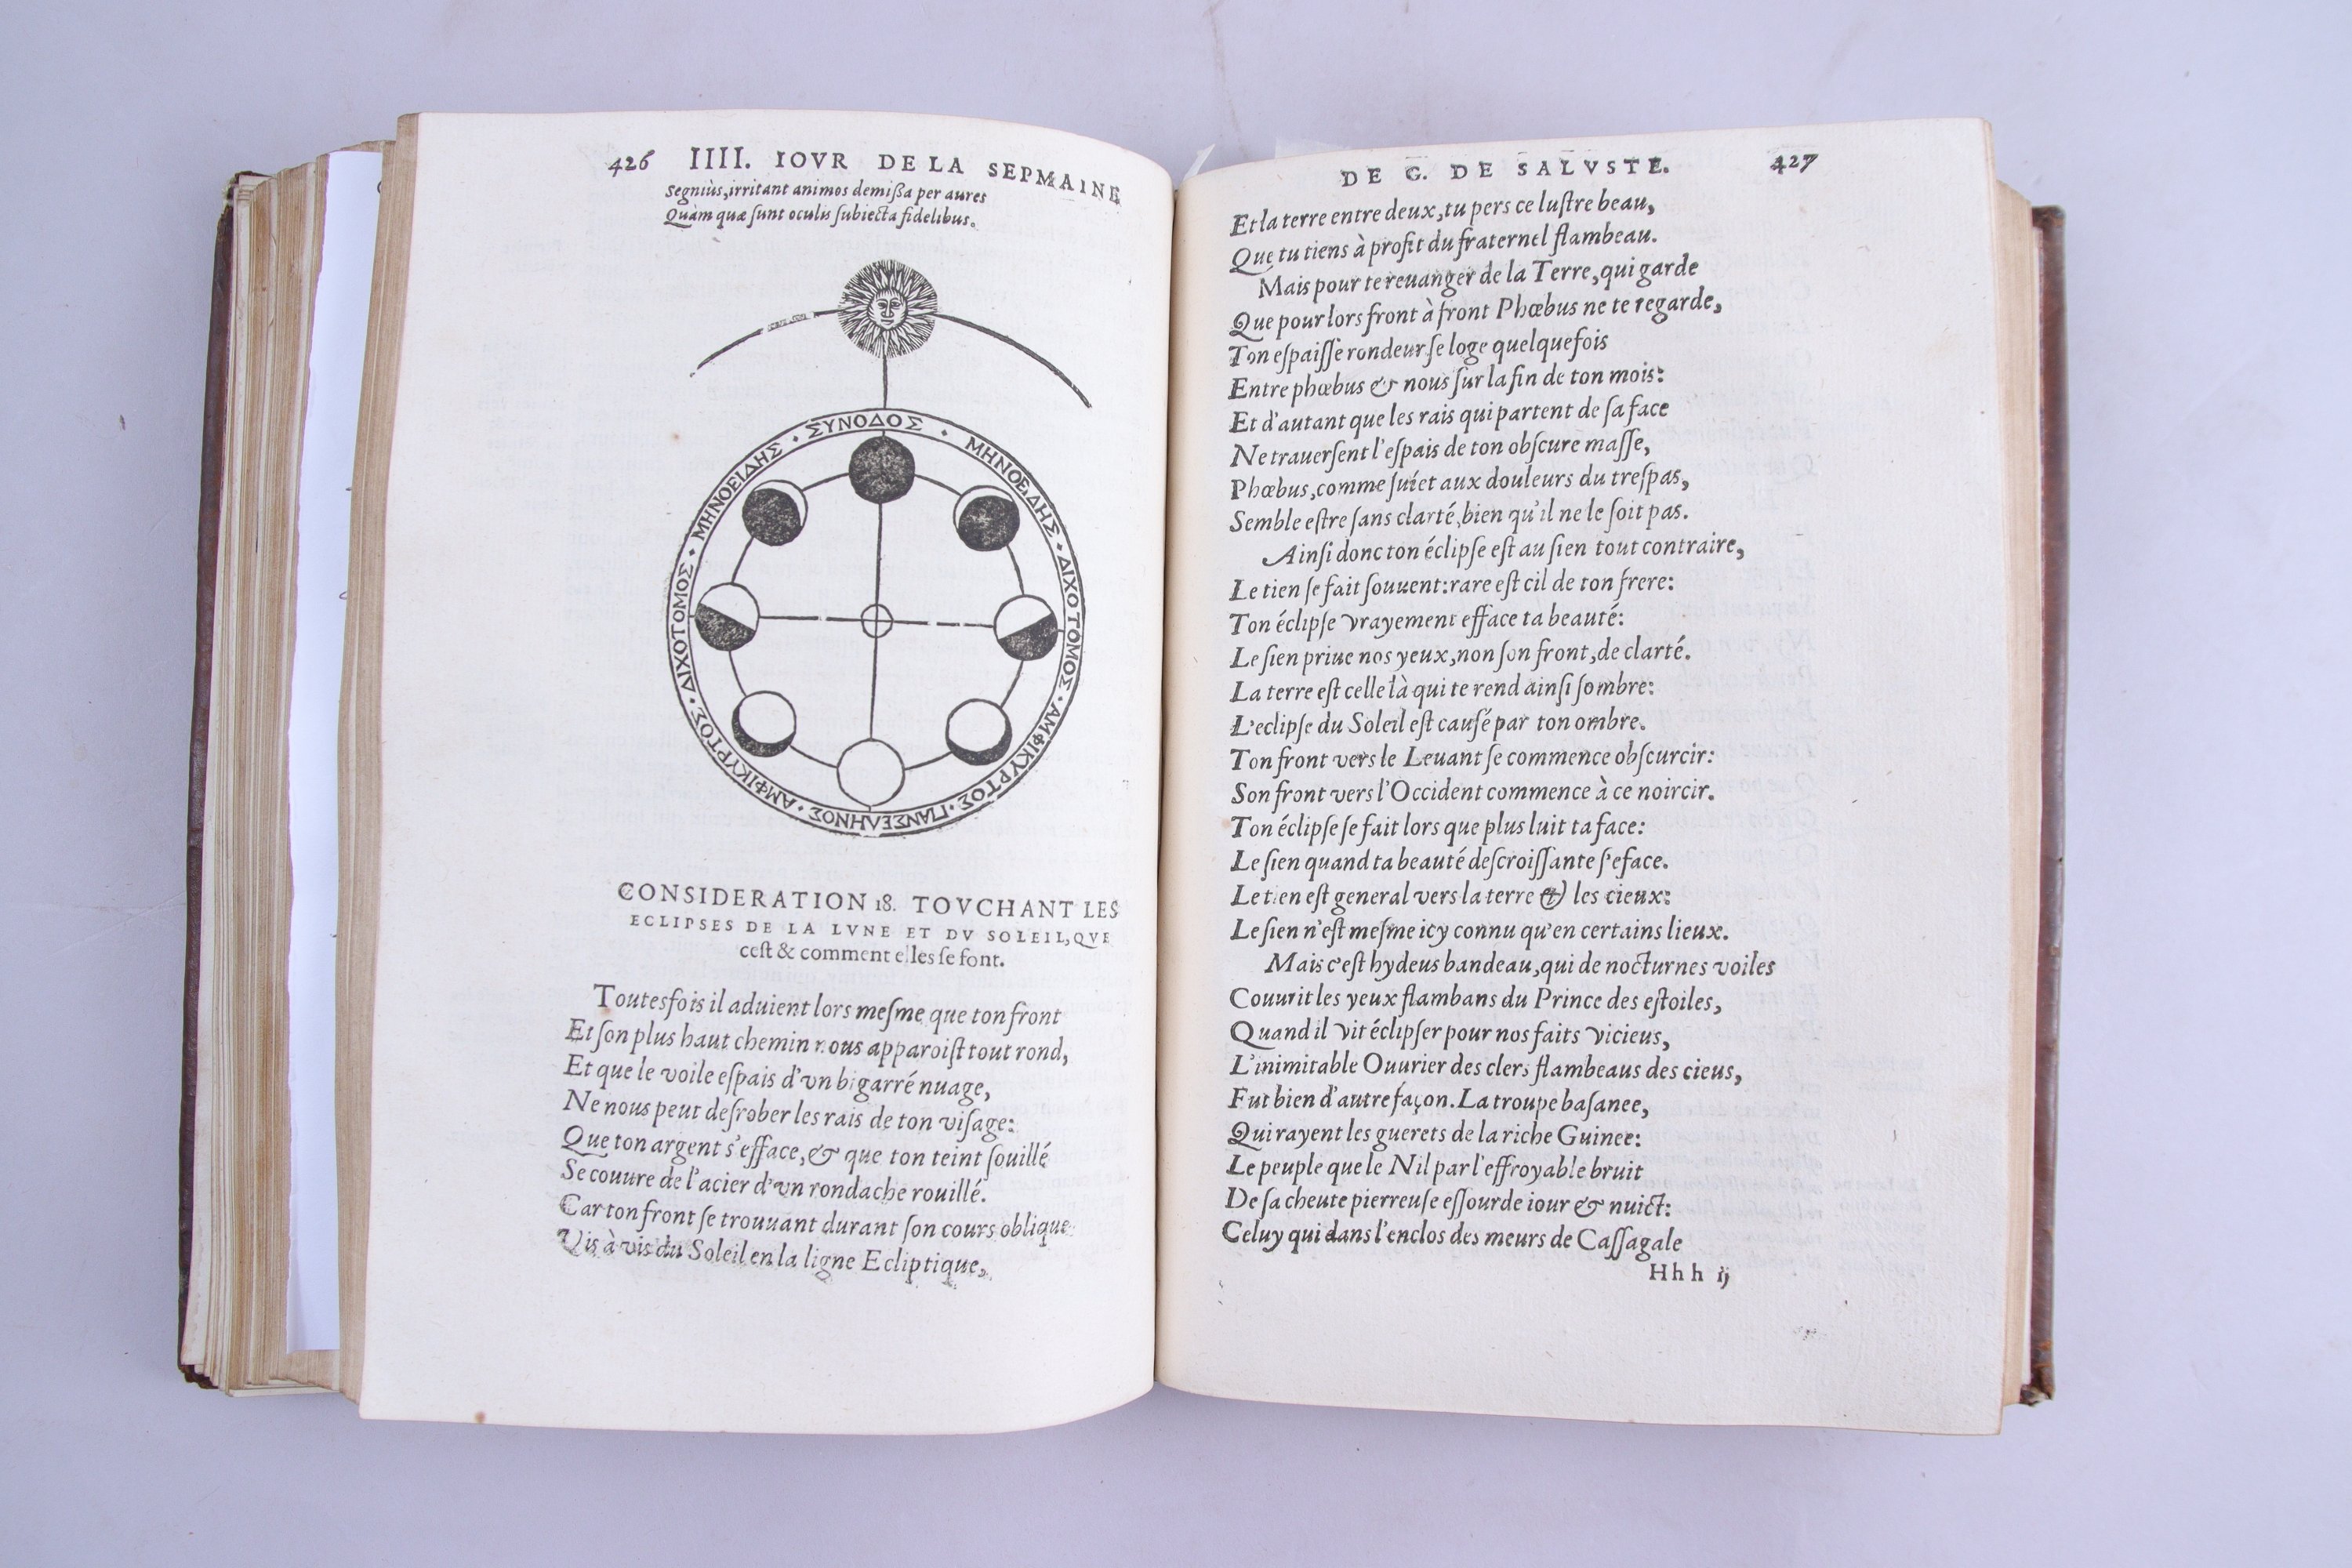 426 IIII. IOVR DE LA SEPMAINE
Segniùs, irritant animos demißa per aures
Quàm quæ ſunt oculis ſubiecta fidelibus.
ΣΥΝΟΔΟΣ · ΜΗΝΟΕΙΔΗΣ · ΔΙΧΟΤΟΜΟΣ · ΑΜΦΙΚΥΡΤΟΣ · ΠΑΝΣΕΛΗΝΟΣ · ΑΜΦΙΚΥΡΤΟΣ · ΔΙΧΟΤΟΜΟΣ · ΜΗΝΟΕΙΔΗΣ ·
CONSIDERATION 18. TOVCHANT LES
ECLIPSES DE LA LVNE ET DV SOLEIL, QVE
ceſt & comment elles ſe font.
Toutesfois il aduient lors meſme que ton front
Et ſon plus haut chemin nous apparoiſt tout rond,
Et que le voile eſpais d'vn bigarré nuage,
Ne nous peut deſrober les rais de ton viſage:
Que ton argent s'efface, & que ton teint ſouillé
Se couure de l'acier d'vn rondache rouillé.
Car ton front ſe trouuant durant ſon cours oblique
Vis à vis du Soleil en la ligne Ecliptique,
DE G. DE SALVSTE. 427
Et la terre entre deux, tu pers ce luſtre beau,
Que tu tiens à profit du fraternel flambeau.
Mais pour te reuanger de la Terre, qui garde
Que pour lors front à front Phœbus ne te regarde,
Ton eſpaiſſe rondeur ſe loge quelquefois
Entre phœbus & nous ſur la fin de ton mois:
Et d'autant que les rais qui partent de ſa face
Ne trauerſent l'eſpais de ton obſcure maſſe,
Phœbus, comme ſuiet aux douleurs du treſpas,
Semble eſtre ſans clarté, bien qu'il ne le ſoit pas.
Ainſi donc ton éclipſe eſt au ſien tout contraire,
Le tien ſe fait ſouuent: rare eſt cil de ton frere:
Ton éclipſe vrayement efface ta beauté:
Le ſien priue nos yeux, non ſon front, de clarté.
La terre eſt celle là qui te rend ainſi ſombre:
L'eclipſe du Soleil eſt cauſé par ton ombre.
Ton front vers le Leuant ſe commence obſcurcir:
Son front vers l'Occident commence à ce noircir.
Ton éclipſe ſe fait lors que plus luit ta face:
Le ſien quand ta beauté deſcroiſſante ſ'eface.
Le tien eſt general vers la terre & les cieux:
Le ſien n'eſt meſme icy connu qu'en certains lieux.
Mais c'eſt hydeus bandeau, qui de nocturnes voiles
Couurit les yeux flambans du Prince des eſtoiles,
Quand il vit éclipſer pour nos faits vicieus,
L'inimitable Ouurier des clers flambeaus des cieus,
Fut bien d'autre façon. La troupe baſanee,
Qui rayent les guerets de la riche Guinee:
Le peuple que le Nil par l'effroyable bruit
De ſa cheute pierreuſe eſſourde iour & nuict:
Celuy qui dans l'enclos des meurs de Caſſagale
Hhh ij